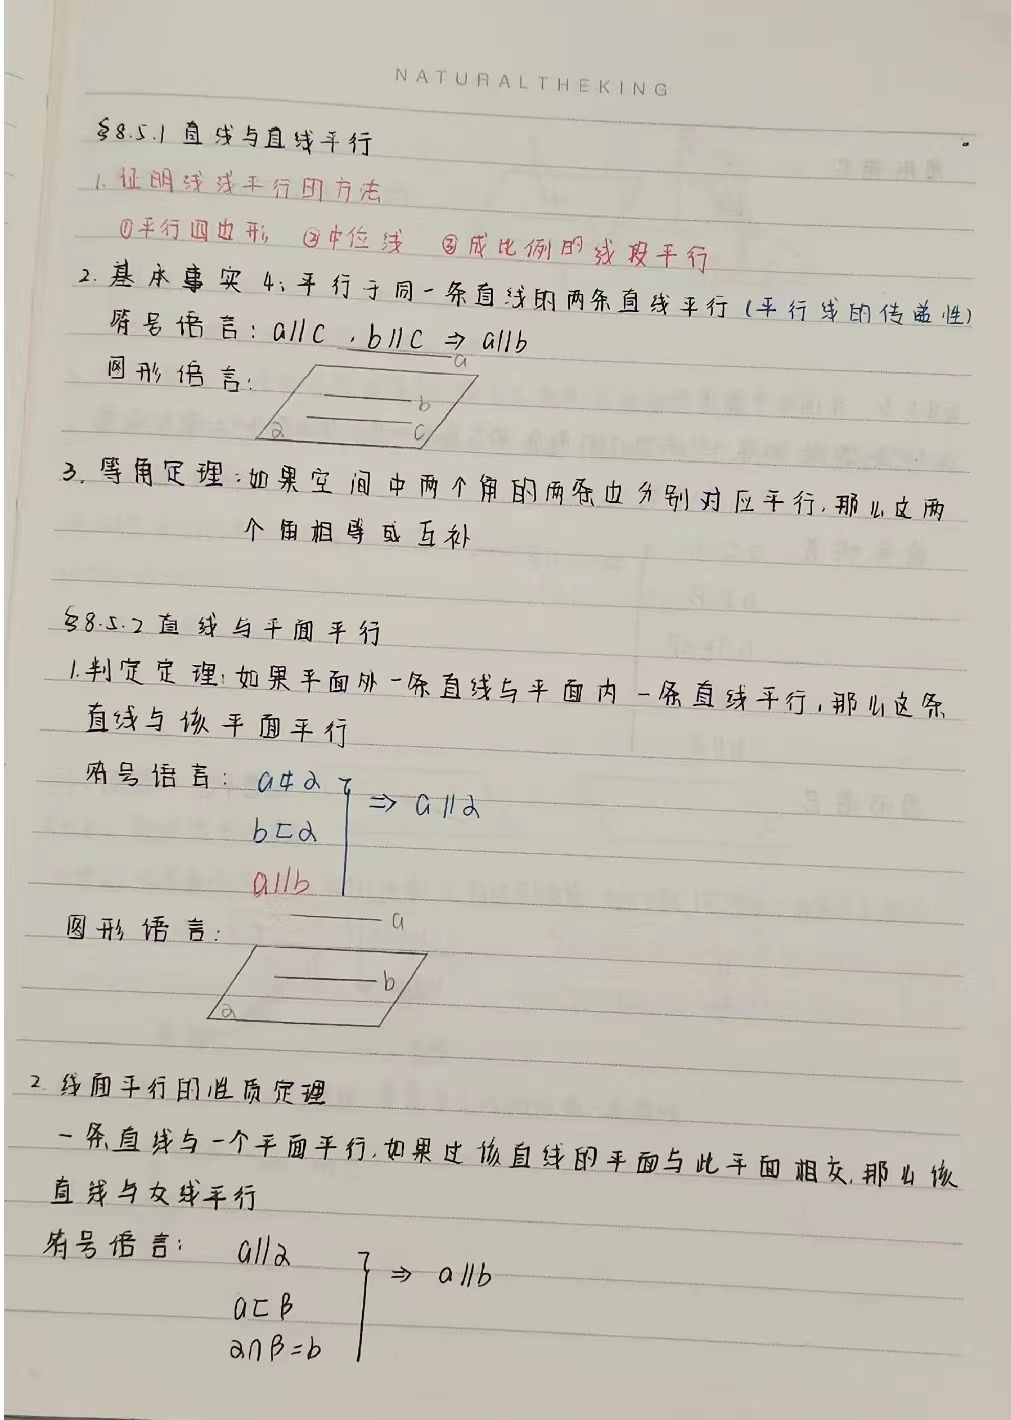 NATURALTHEKING
§8.5.1 直线与直线平行
1. 证明线线平行的方法
①平行四边形 ②中位线 ③成比例的线段平行
2. 基本事实4: 平行于同一条直线的两条直线平行 (平行线的传递性)
符号语言: a∥c , b∥c ⇒ a∥b
图形语言:
a
b
α c
3. 等角定理: 如果空间中两个角的两条边分别对应平行, 那么这两
个角相等或互补
§8.5.2 直线与平面平行
1. 判定定理: 如果平面外一条直线与平面内一条直线平行, 那么这条
直线与该平面平行
符号语言: a⊄α
b⊂α ⇒ a∥α
a∥b
图形语言:
a
b
α
2. 线面平行的性质定理
一条直线与一个平面平行, 如果过该直线的平面与此平面相交, 那么该
直线与交线平行
符号语言: a∥α
a⊂β ⇒ a∥b
α∩β=b